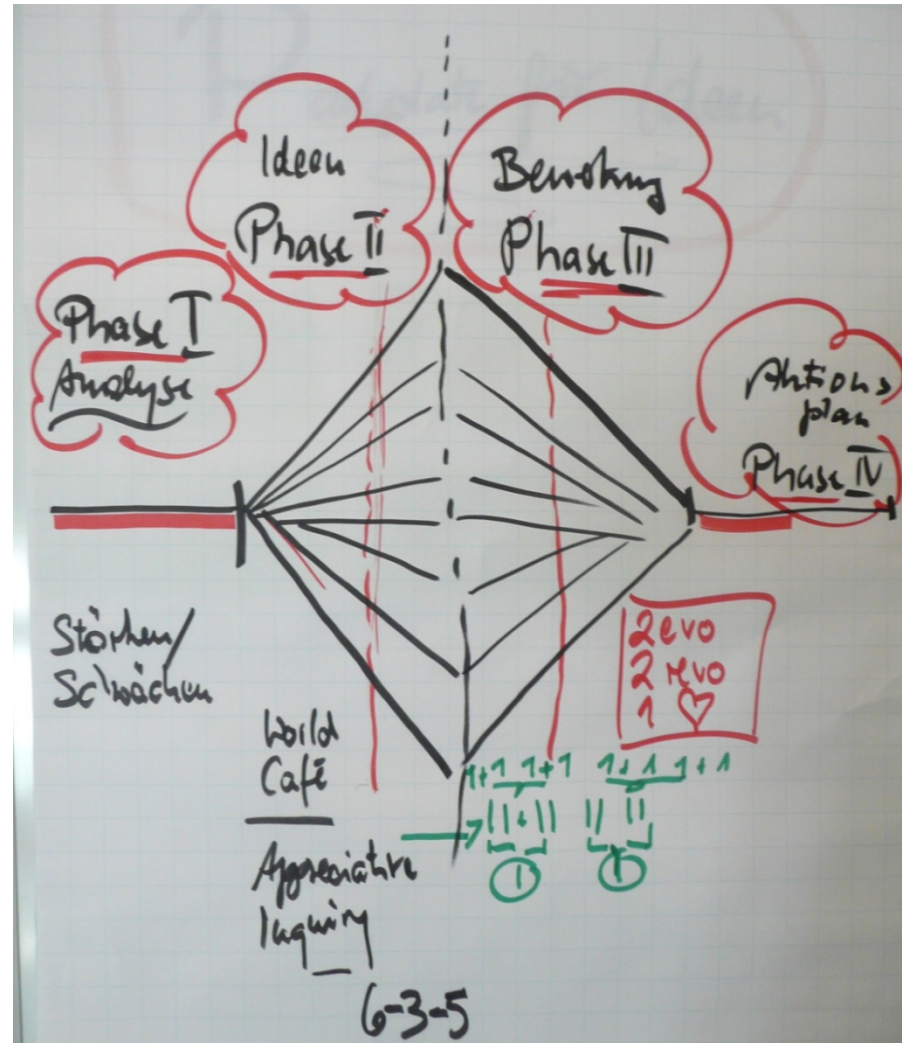 Ideen
Phase II
Bewertung
Phase III
Phase I
Analyse
Aktions
plan
Phase IV
Stärken/
Schwächen
2 evo
2 revo
1 ♡
World
Café
Appreciative
Inquiry
6-3-5
1+1 1+1 1+1 1+1
||+|| || ||
1 1
für Ideen